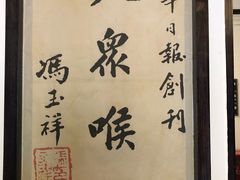 日報創刊
眾喉
馮玉祥